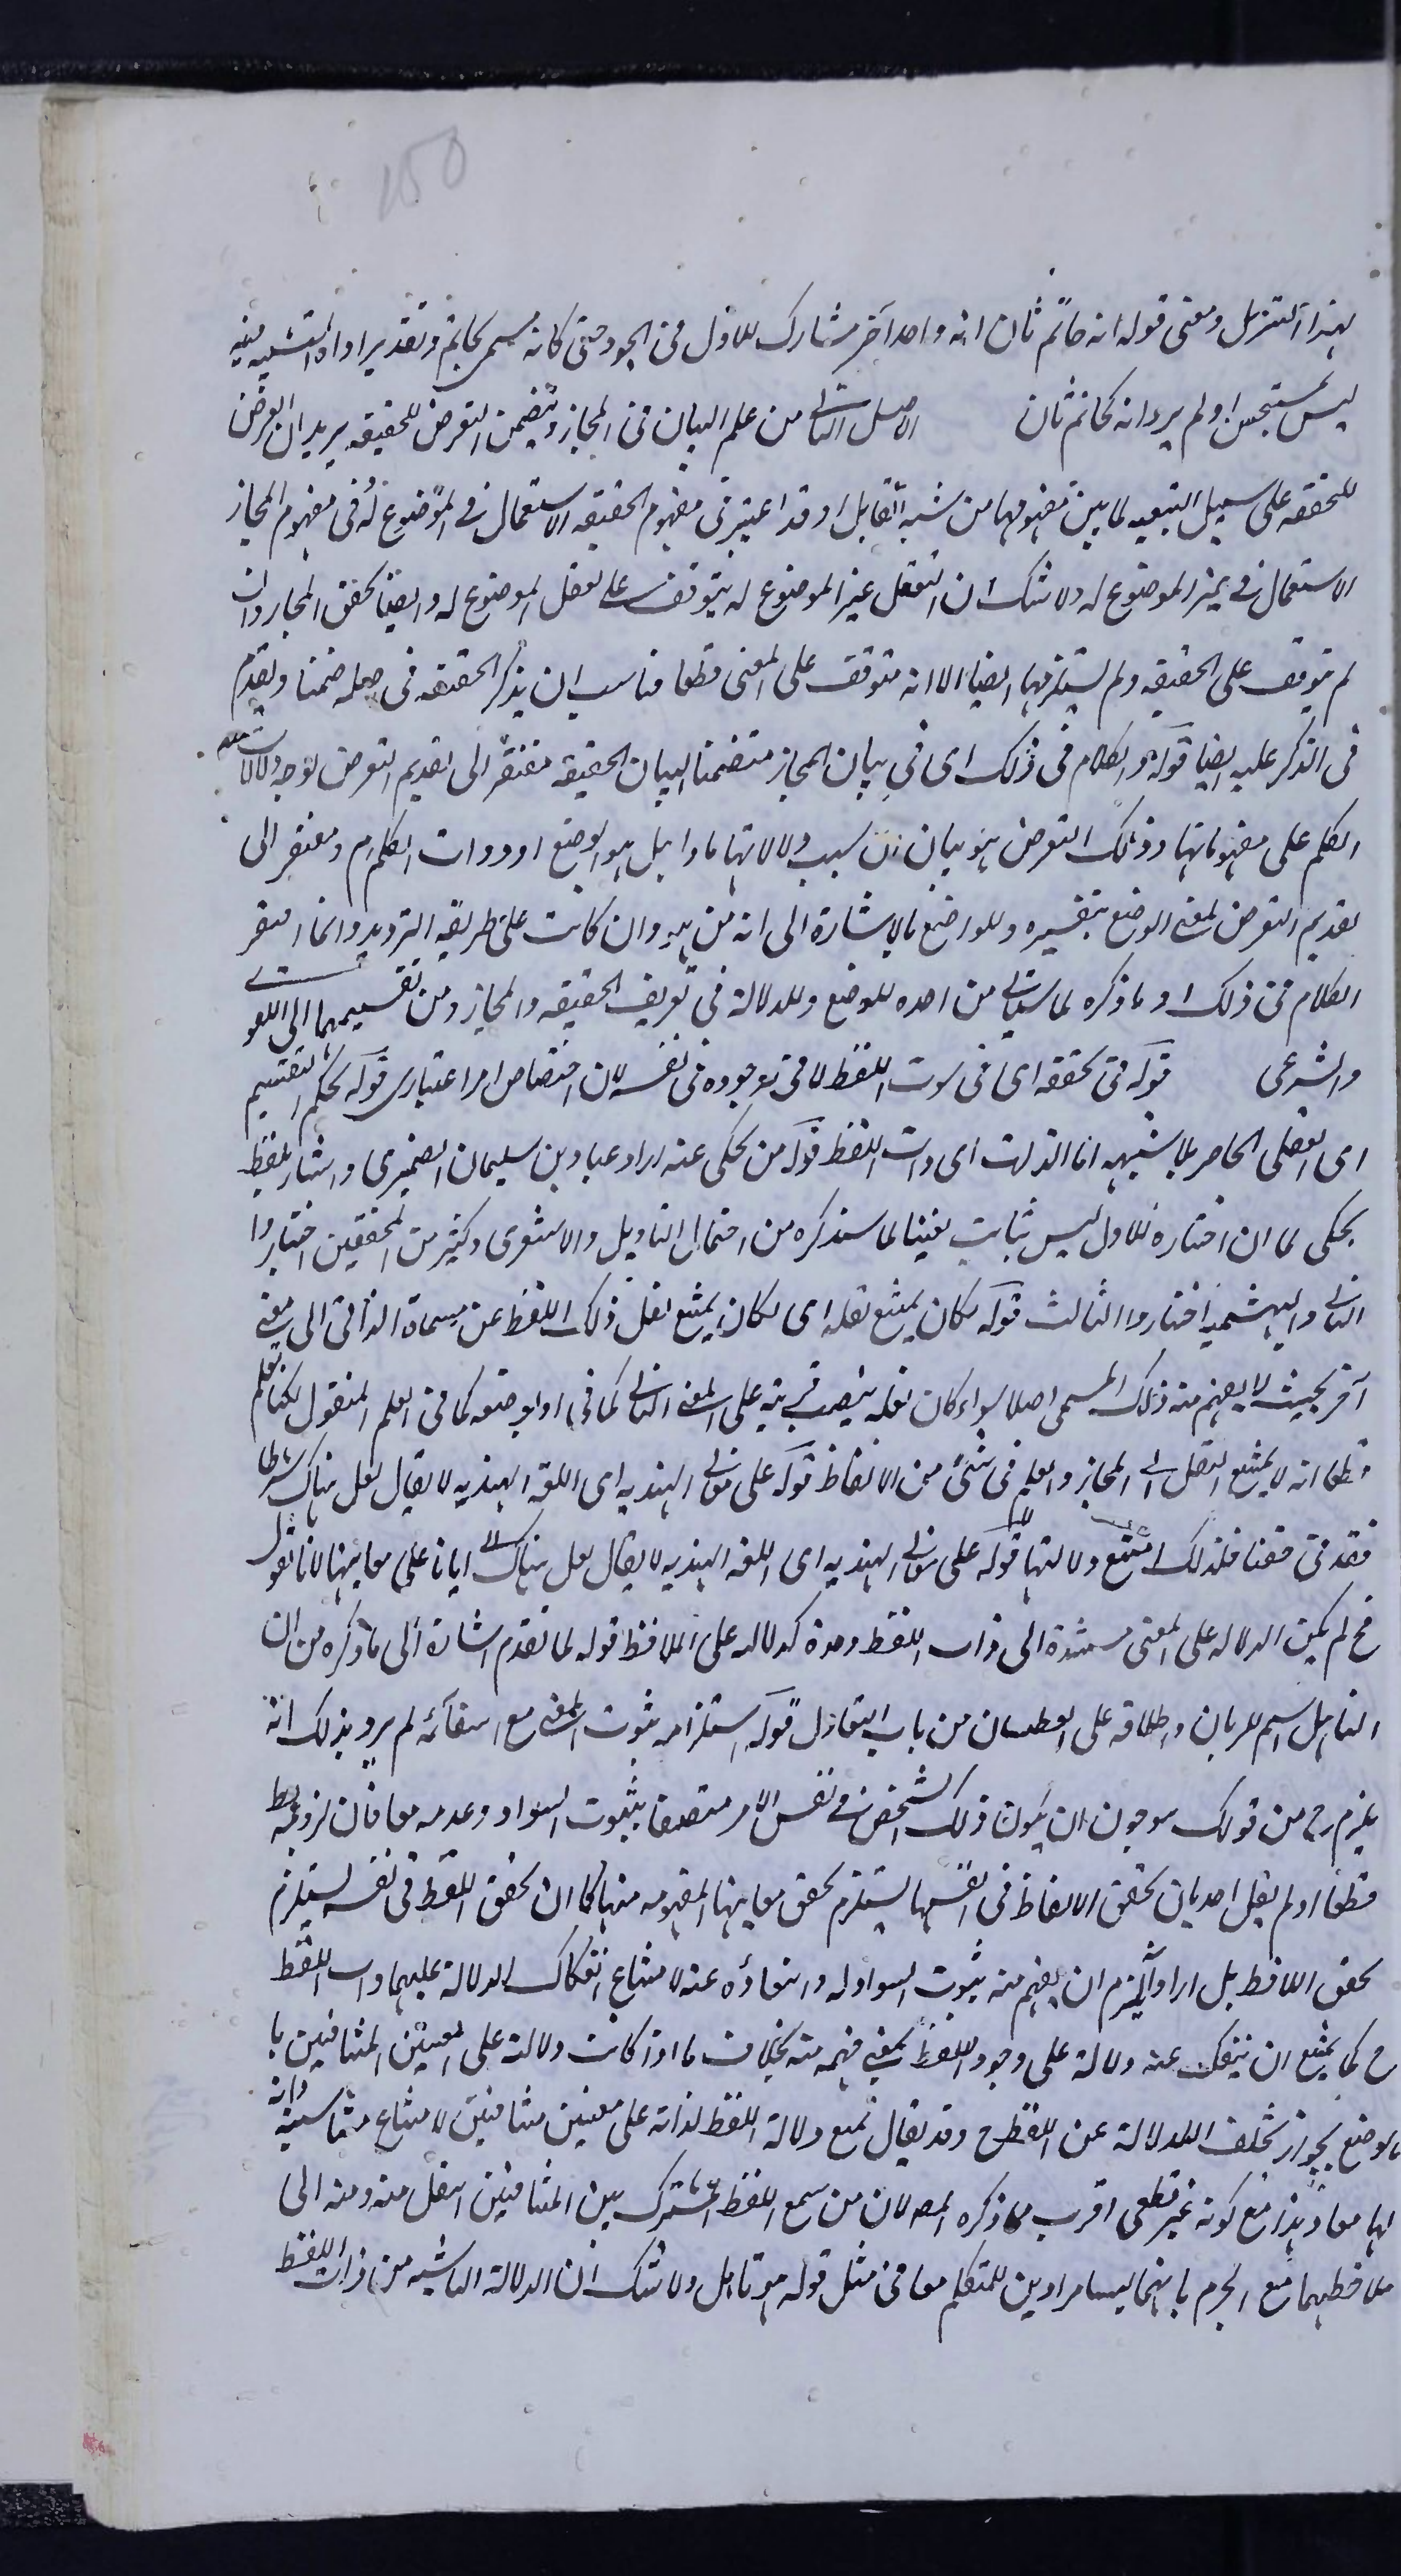 150
لهذا التنزيل ومعنى قوله انه حاتم ثان انه واحد آخر مشارك للاول فى الجود حتى كانه مسمى بحاتم وتقدير اداة التشبيه فيه
ليس بمستحسن اولم يرد انه كحاتم ثان الاصل الثانى من علم البيان فى المجاز ويتضمن التعرض للحقيقه يريد ان التعرض
للحقيقه على سبيل التبعيه لما بين مفهوميهما من شبه التقابل اذ قد اعتبر فى مفهوم الحقيقه الاستعمال فى الموضوع له وفى مفهوم المجاز
الاستعمال فى غير الموضوع له ولا شك ان تعقل غير الموضوع له يتوقف على تعقل الموضوع له وايضا تحقق المجاز وان
لم يتوقف على الحقيقه ولم يستلزمها ايضا الا انه متوقف على المعنى قطعا فناسب ان يذكر الحقيقه فى اصله ضمنا ويقدم
فى الذكر عليه ايضا قوله والكلام فى ذلك اى فى بيان المجاز متضمنا لبيان الحقيقه مفتقر الى تقديم التعرض لوجه دلالات
الكلم على مفهوماتها وذلك التعرض هو بيان ان سبب دلالاتها ماذا هل هو الوضع او ذوات الكلم ام ومفتقر الى
تقديم التعرض لمعنى الوضع بتفسيره وللواضع بالاشارة الى انه من هو وان كانت على طريقة الترديد وانما افتقر
الكلام فى ذلك الى ما ذكره لما سيأتى من اخذه للوضع وللدلالة فى تعريف الحقيقه والمجاز ومن تقسيمهما الى اللغوى
والشرعى قوله فى تحققه اى فى ثبوت اللفظ لا فى وجوده فى نفسه لان اختصاص امر اعتبارى قوله بحكم التقسيم
اى العقلى الحاصر بلا شبهه اما الذات اى ذات اللفظ قوله من يحكى عنه اراد عباد بن سليمان الصيمرى واشار بلفظ
يحكى لما ان اختياره للاول ليس بثابت يقينا لما سنذكره من احتمال التاويل والاشعرى وكثير من المحققين اختاروا
الثانى والبهشميه اختاروا الثالث قوله لكان يمتنع نقله اى لكان يمتنع نقل ذلك اللفظ عن مسماه الذاتى الى معنى
آخر بحيث لا يفهم منه ذلك المسمى اصلا سواء كان نقله بنصب قرينه على المعنى الثانى كما فى او بوضعه كما فى العلم المنقول لكنا نعلم
قطعا انه لا يمتنع النقل الى المجاز والعلم فى شئ من الالفاظ قوله على معانى الهنديه اى اللغه الهنديه لا يقال لعل هناك شرطا
فقد فى حقنا فلذلك امتنع دلالتها قوله على معانى الهنديه اى اللغه الهنديه لا يقال لعل هناك ايانا على معانيها لانا نقول
فح لم يكن الدلاله على المعنى مستندة الى ذات اللفظ وحده كدلالته على اللافظ قوله لما تقدم اشارة الى ما ذكره من ان
الناهل اسم للريان واطلاقه على العطشان من باب التفاؤل قوله استلزامه ثبوت المعنى مع انتفائه لم يرد بذلك انه
يلزم ح من قولك هو جون ان يكون ذلك الشخص فى نفس الامر متصفا بثبوت السواد وعدمه معا فان لزومه
قطعا اذ لم يقل احد بان تحقق الالفاظ فى انفسها يستلزم تحقق معانيها المفهومه منها كما ان تحقق اللفظ فى نفسه يستلزم
تحقق اللافظ بل اراد انه يلزم ان يفهم منه ثبوت السواد له وانتفاؤه عنه لامتناع انفكاك الدلالة عليهما ذات اللفظ
ح كما يمتنع ان ينفك عنه دلالة على وجود اللافظ بمعنى فهمه منه بخلاف ما اذا كانت دلالته على المعنيين المتنافيين با
بالوضع بجواز تخلف الدلالة عن اللفظ ح وقد يقال نمنع دلالة اللفظ لذاته على معنيين متنافيين لامتناع مناسبة ذاته
لهما معا وهذا مع كونه غير قطعى اقرب مما ذكره المص لان من سمع اللفظ المشترك بين المتنافيين انتقل منه ومنه الى
ملاحظتهما مع الجزم بانهما ليسا مرادين للمتكلم معا فى مثل قوله هو ناهل ولا شك ان الدلالة الناشيه من ذات اللفظ